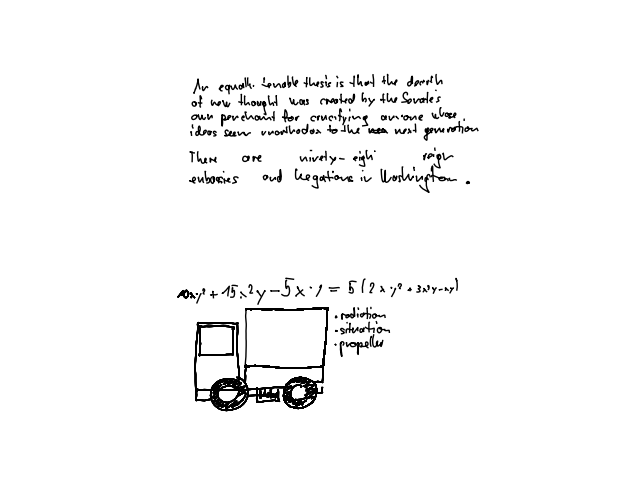 An equally tenable thesis is that the dearth
of new thought was created by the Senate's
own penchant for crucifying anyone whose
ideas seem unorthodox to the next generation
There are ninety-eight
embassies and legations in Washington.
10x·y² + 15x²y - 5x·y = 5(2x·y² + 3x²y - xy)
· radiation
· situation
· propeller